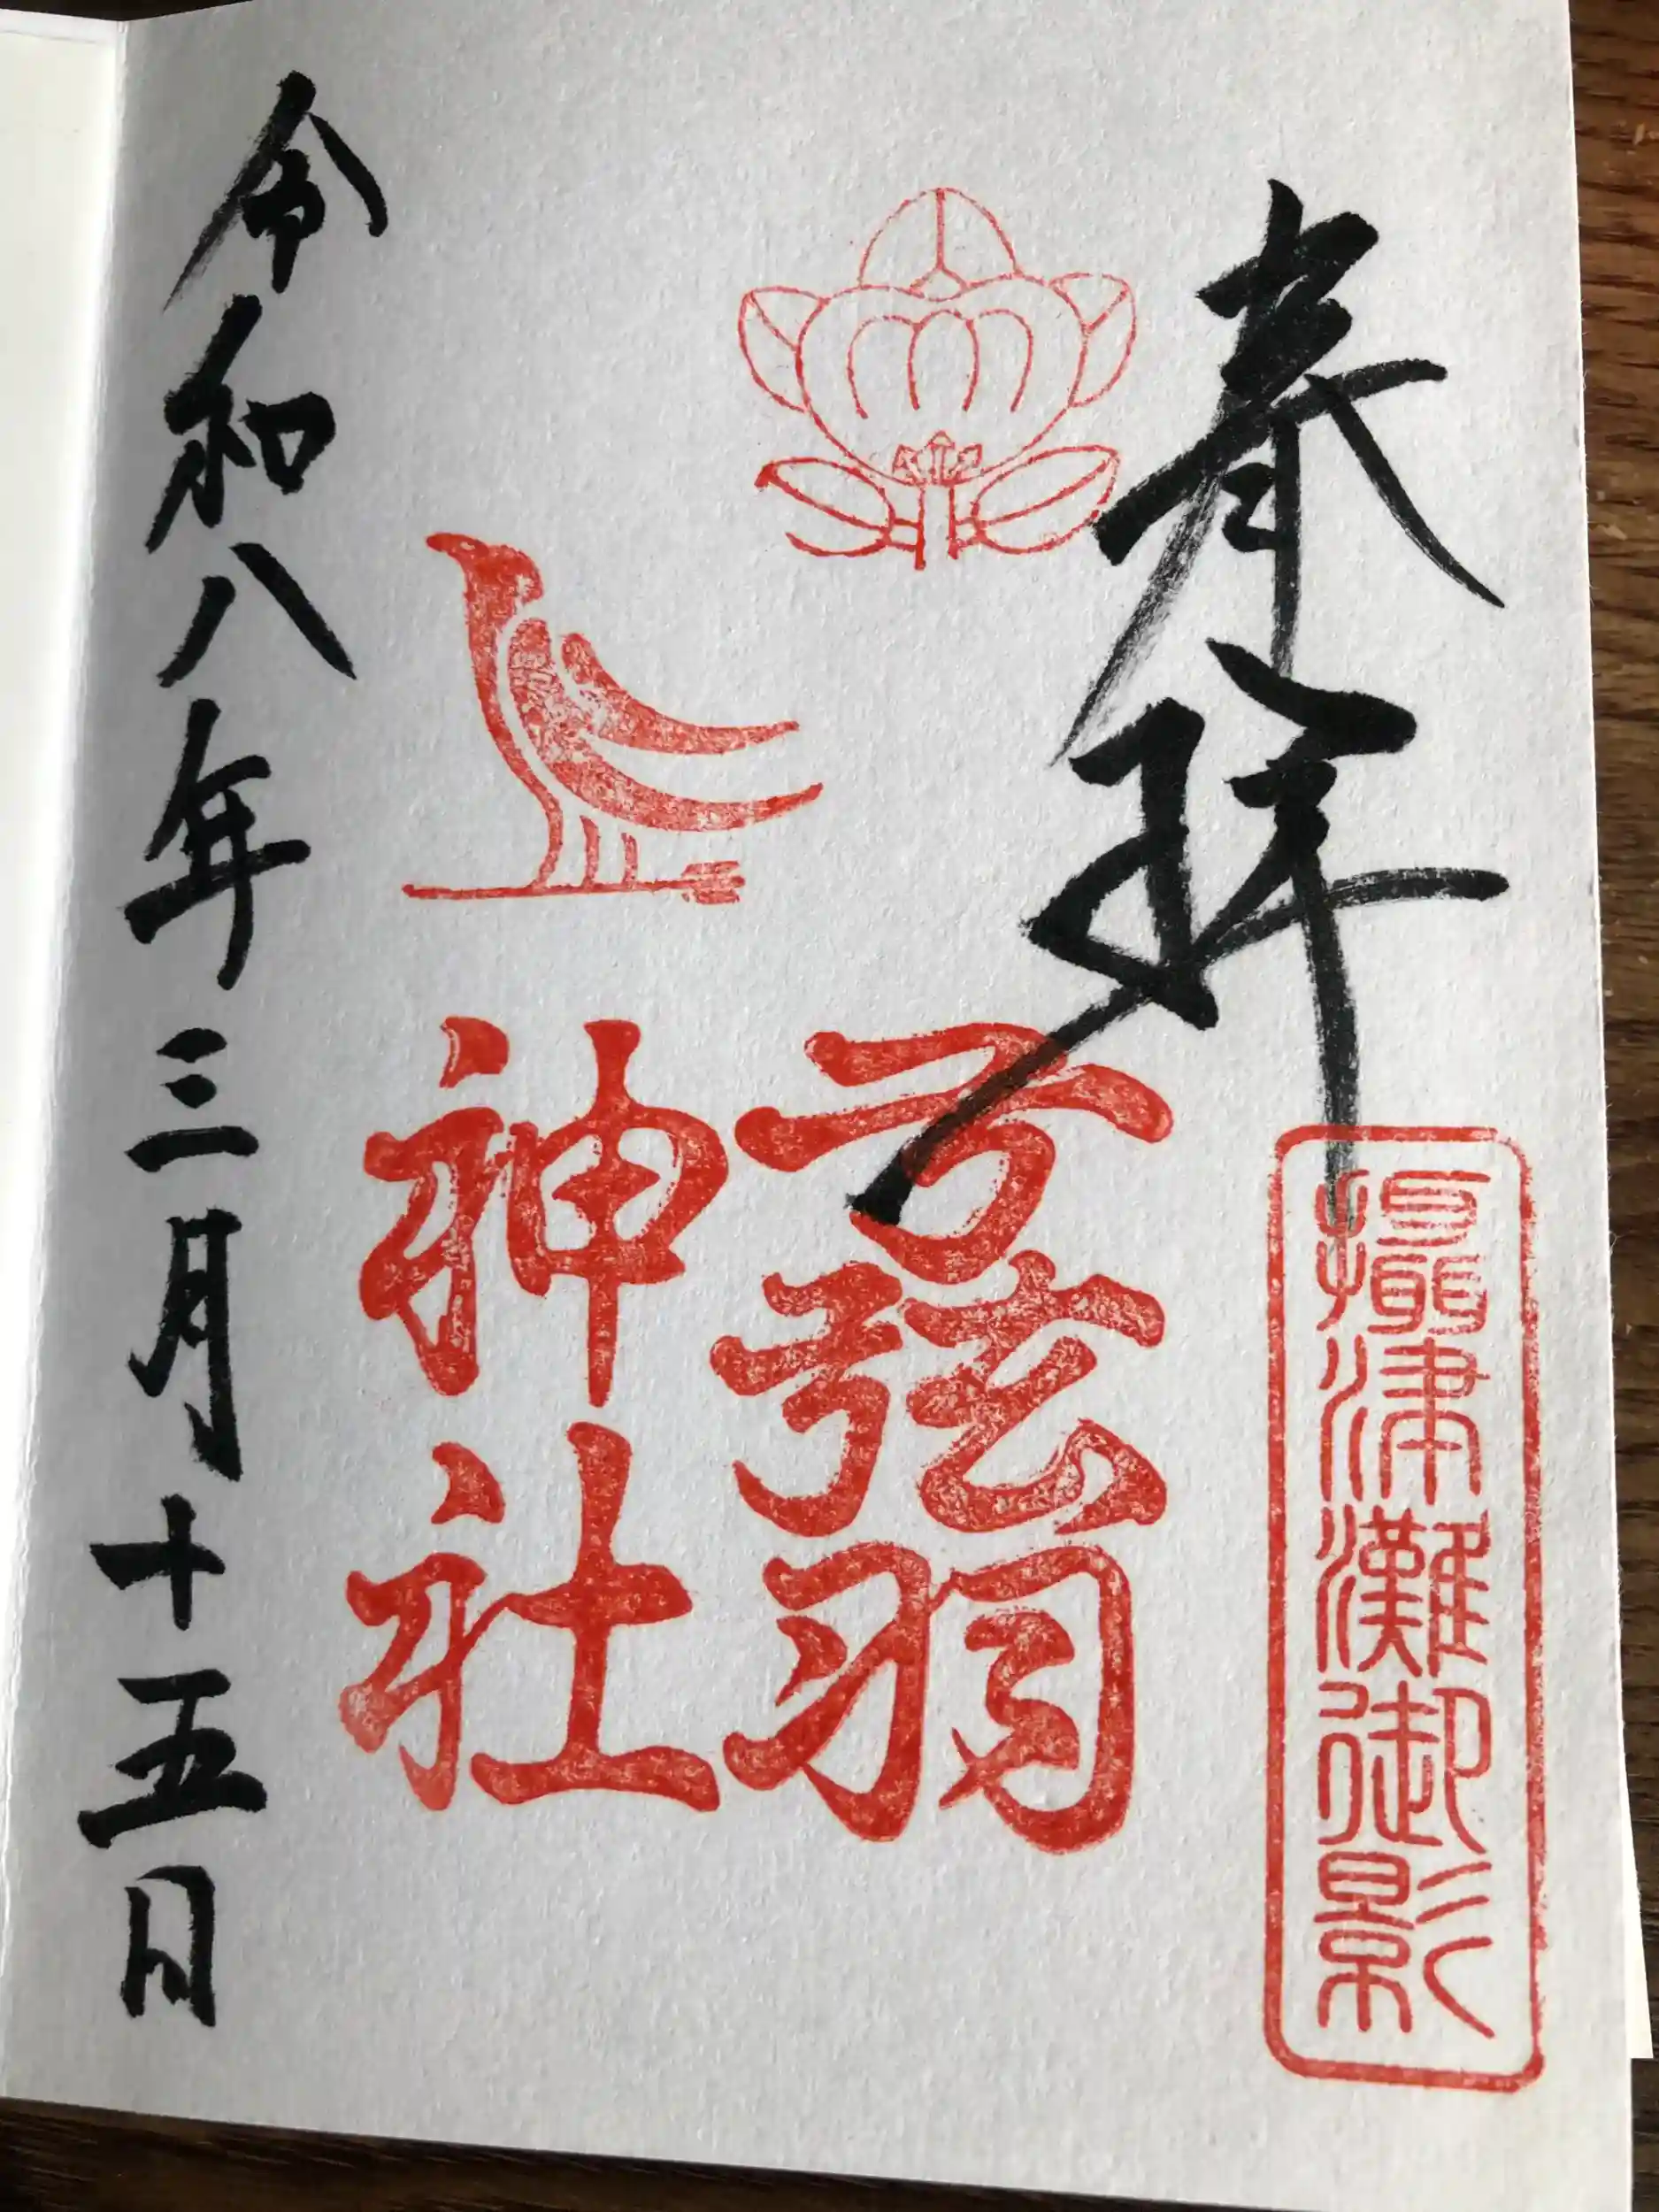 奉拝
摂津灘御影
弓弦羽
神社
令和八年三月十五日